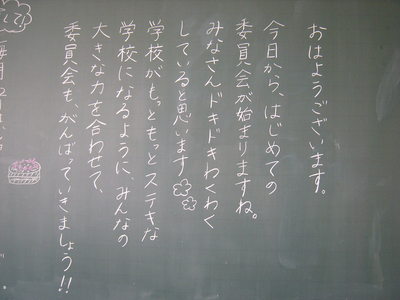 おはようございます。
今日から、はじめての
委員会が始まりますね。
みなさんドキドキわくわく
していると思います
学校がもっともっとステキな
学校になるように、みんなの
大きな力を合わせて、
委員会も、がんばっていきましょう!!